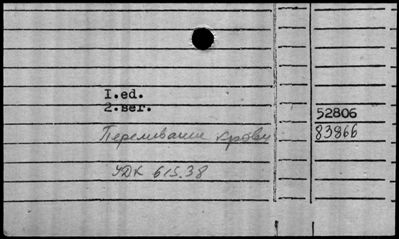 I.ed.
2.ser.
52806
Переливание крови
83866
УДК 615.38